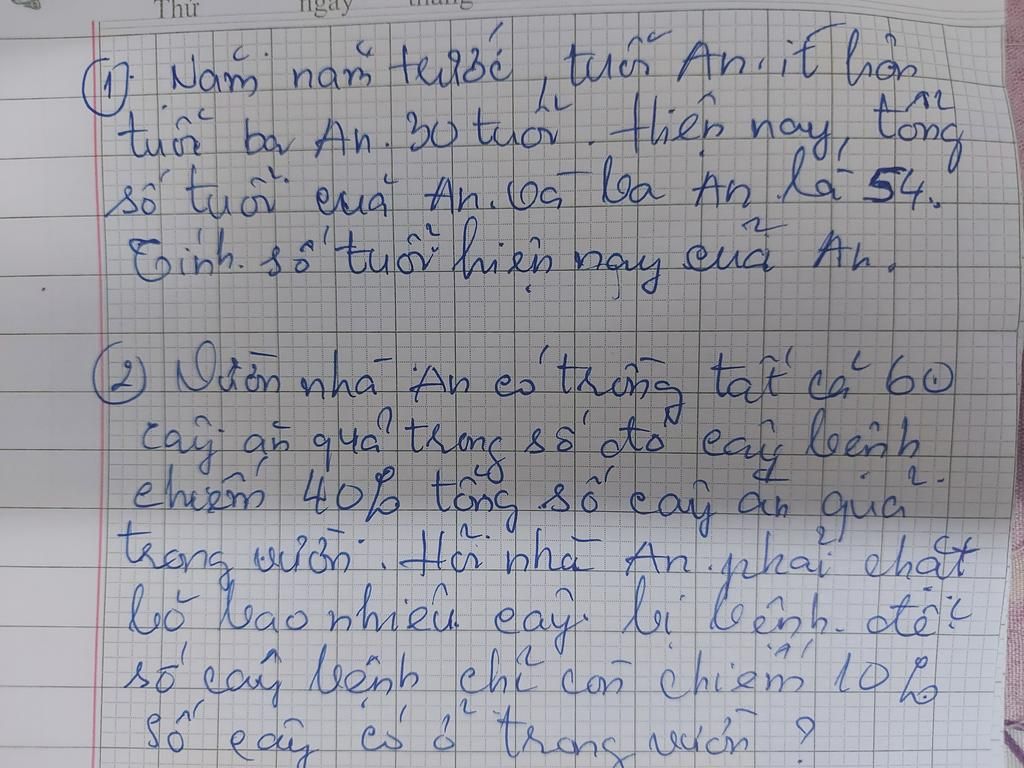 Thứ ngày tháng
① Năm năm trước, tuổi An ít hơn
tuổi ba An 30 tuổi. Hiện nay, tổng
số tuổi của An và ba An là 54.
Tính số tuổi hiện nay của An.
② Vườn nhà An có trồng tất cả 60
cây ăn quả trong số đó cây bệnh
chiếm 40% tổng số cây ăn quả
trong vườn. Hỏi nhà An phải chặt
bỏ bao nhiêu cây bị bệnh để
số cây bệnh chỉ còn chiếm 10%
số cây có ở trong vườn ?